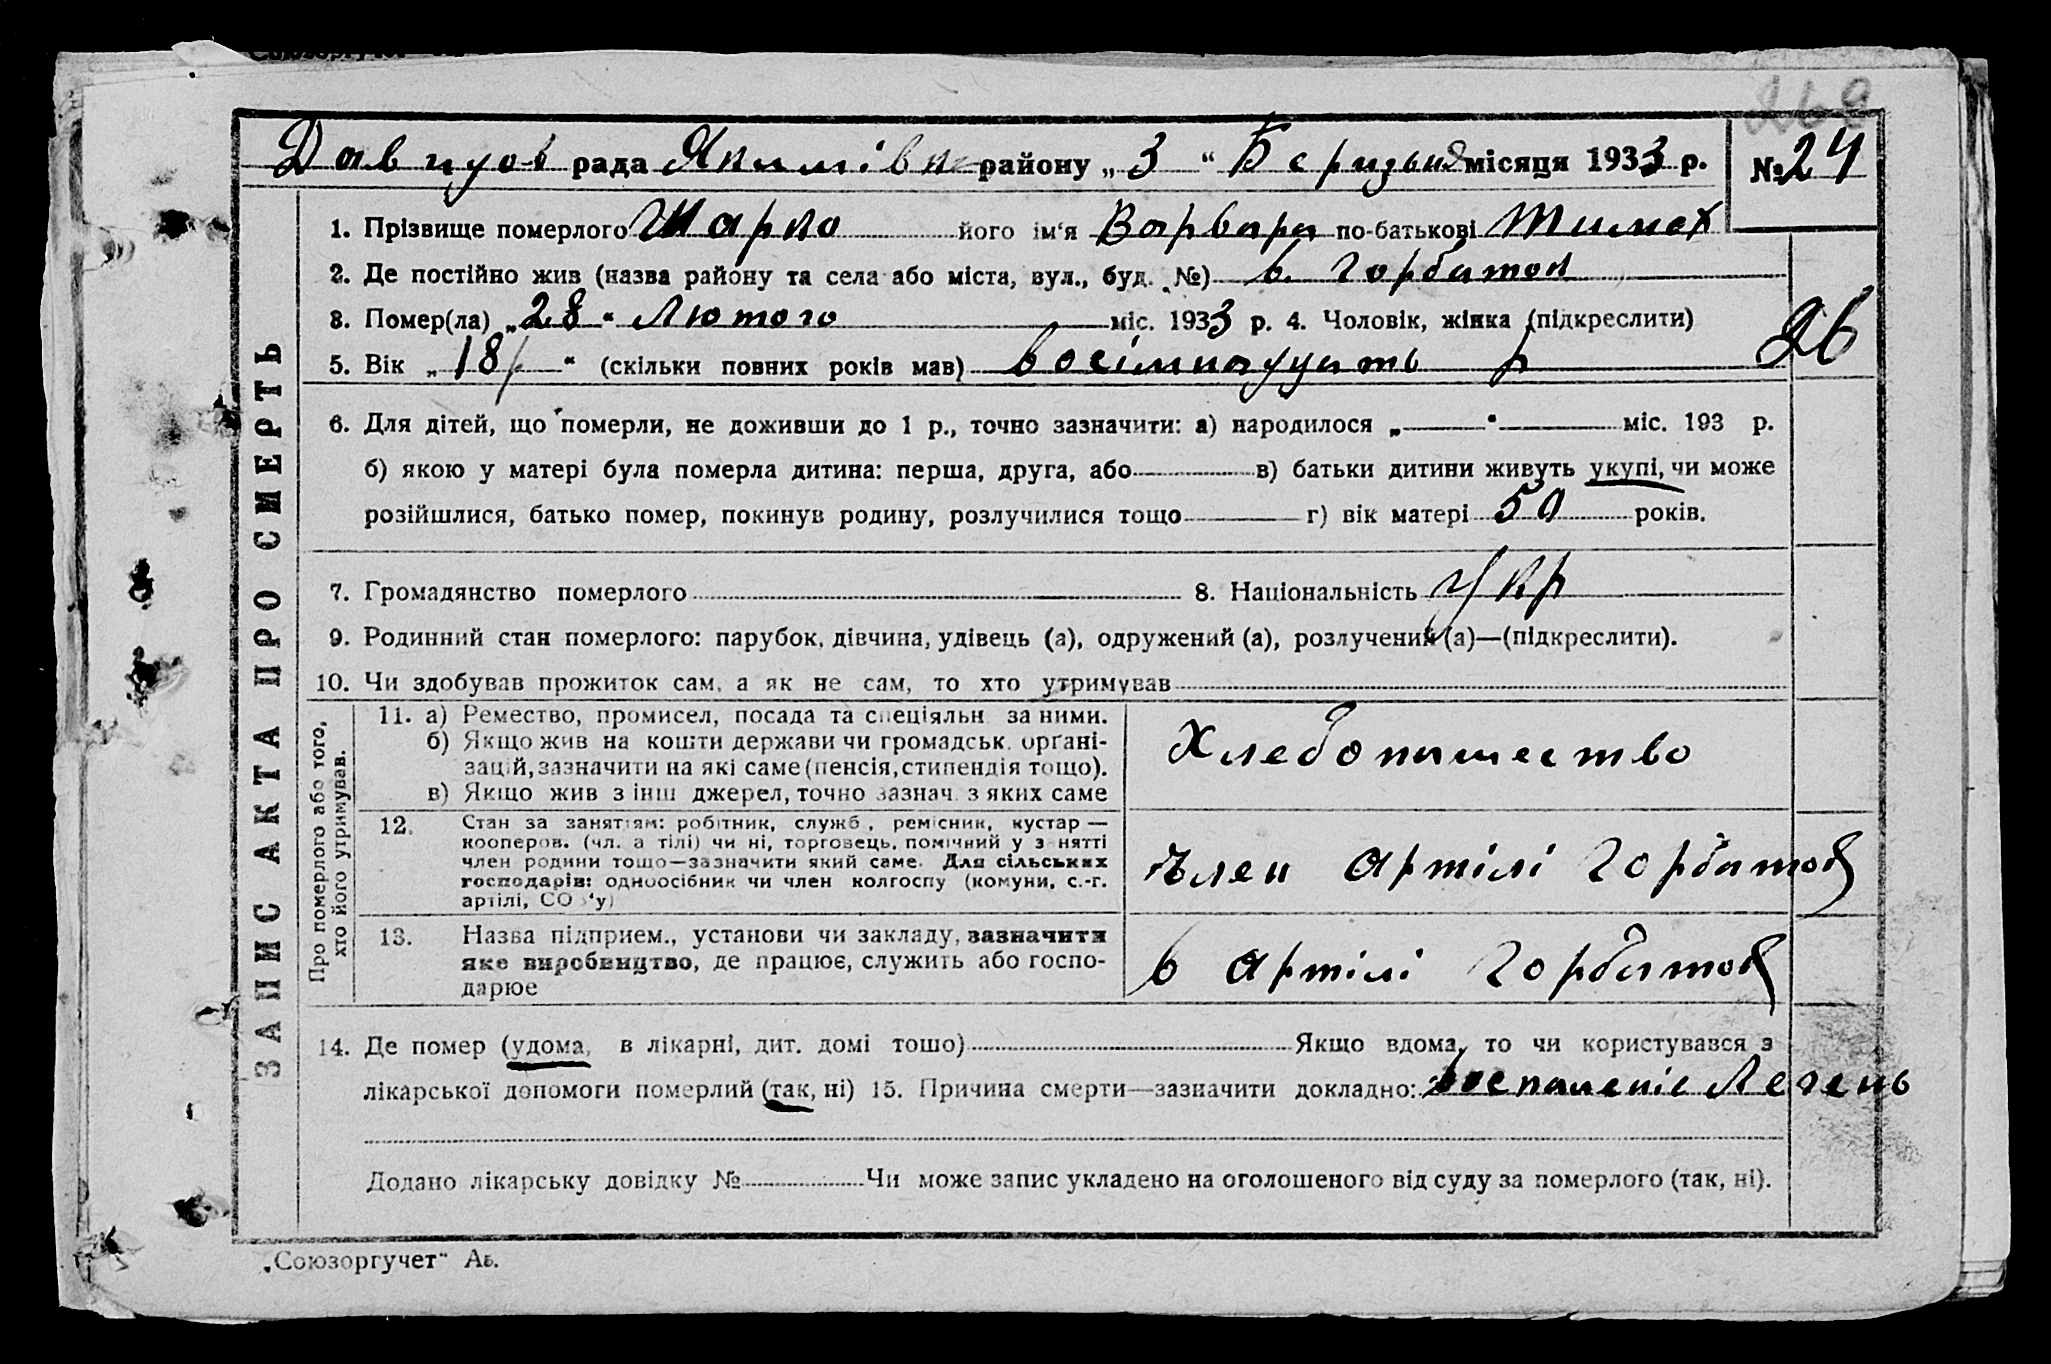 262
Давидов рада Якимівк району „3“ Беризьня місяця 1933 р. №24
1. Прізвище померлого Шарко його ім'я Варвара по-батькові Тимох
2. Де постійно жив (назва району та села або міста, вул., буд. №) в. Горбатов
3. Помер(ла) „28“ Лютого міс. 1933 р. 4. Чоловік, жінка (підкреслити)
26
5. Вік „18“ (скільки повних років мав) восімнадцать р
6. Для дітей, що померли, не доживши до 1 р., точно зазначити: а) народилося „—“— міс. 193 р.
б) якою у матері була померла дитина: перша, друга, або в) батьки дитини живуть укупі, чи може
розійшлися, батько помер, покинув родину, розлучилися тощо г) вік матері 50 років.
7. Громадянство померлого 8. Національність Укр
9. Родинний стан померлого: парубок, дівчина, удівець (а), одружений (а), розлучений (а)—(підкреслити).
10. Чи здобував прожиток сам, а як не сам, то хто утримував
ЗАПИС АКТА ПРО СМЕРТЬ
Про померлого або того,
хто його утримував.
11. а) Ремество, промисел, посада та спеціяльн за ними.
б) Якщо жив на кошти держави чи громадськ. органі-
зацій, зазначити на які саме (пенсія, стипендія тощо).
в) Якщо жив з інш джерел, точно зазнач з яких саме
Хлебопашество
12. Стан за заняттям: робітник, служб., ремісник, кустар —
кооперов. (чл. артілі) чи ні, торговець, помічний у занятті
член родини тощо—зазначити який саме. Для сільських
господарів: одноосібник чи член колгоспу (комуни, с.-г.
артілі, СОЗ'у)
Член артілі Горбатов
13. Назва підприєм., установи чи закладу, зазначити
яке виробництво, де працює, служить або госпо-
дарює
в артілі Горбатов
14. Де помер (удома, в лікарні, дит. домі тощо) Якщо вдома, то чи користувався з
лікарської допомоги померлий (так, ні) 15. Причина смерти—зазначити докладно: воспаленіє Легень
Додано лікарську довідку № Чи може запис укладено на оголошеного від суду за померлого (так, ні).
„Союзоргучет“ Аь.